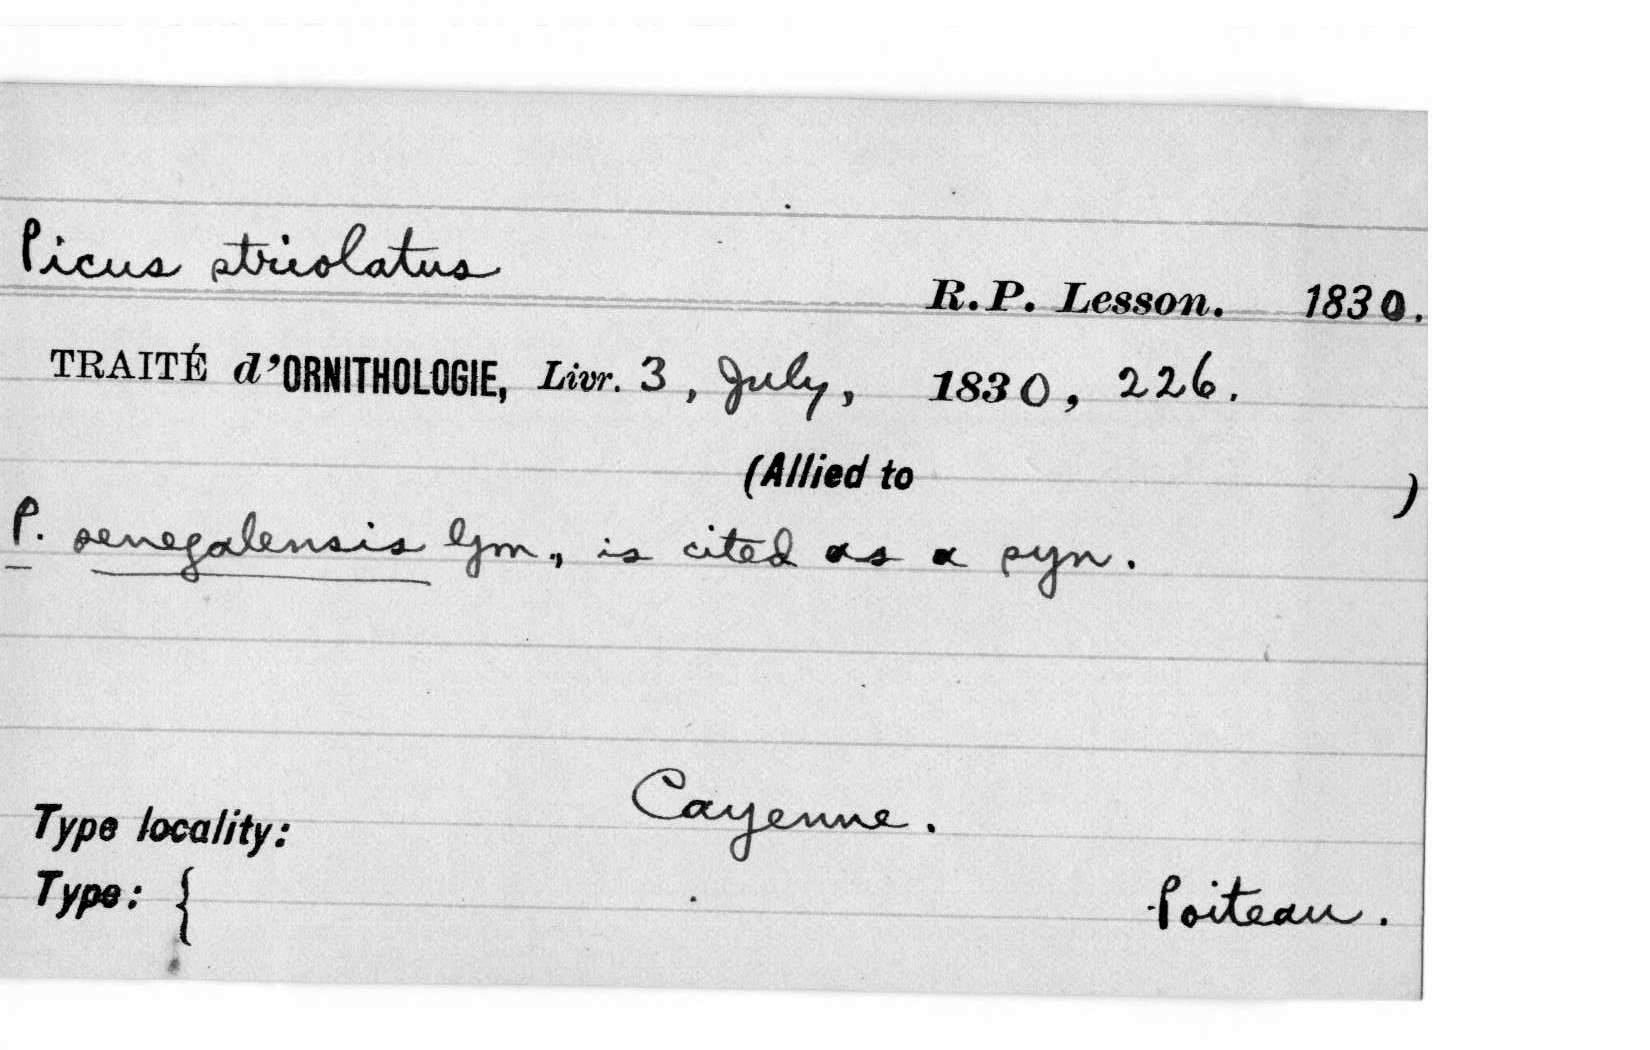 Picus striolatus
R. P. Lesson. 1830.
TRAITÉ d'ORNITHOLOGIE, Livr. 3, July, 1830, 226.
(Allied to )
P. senegalensis Gm., is cited as a syn.
Type locality: Cayenne.
Type: { Poiteau.